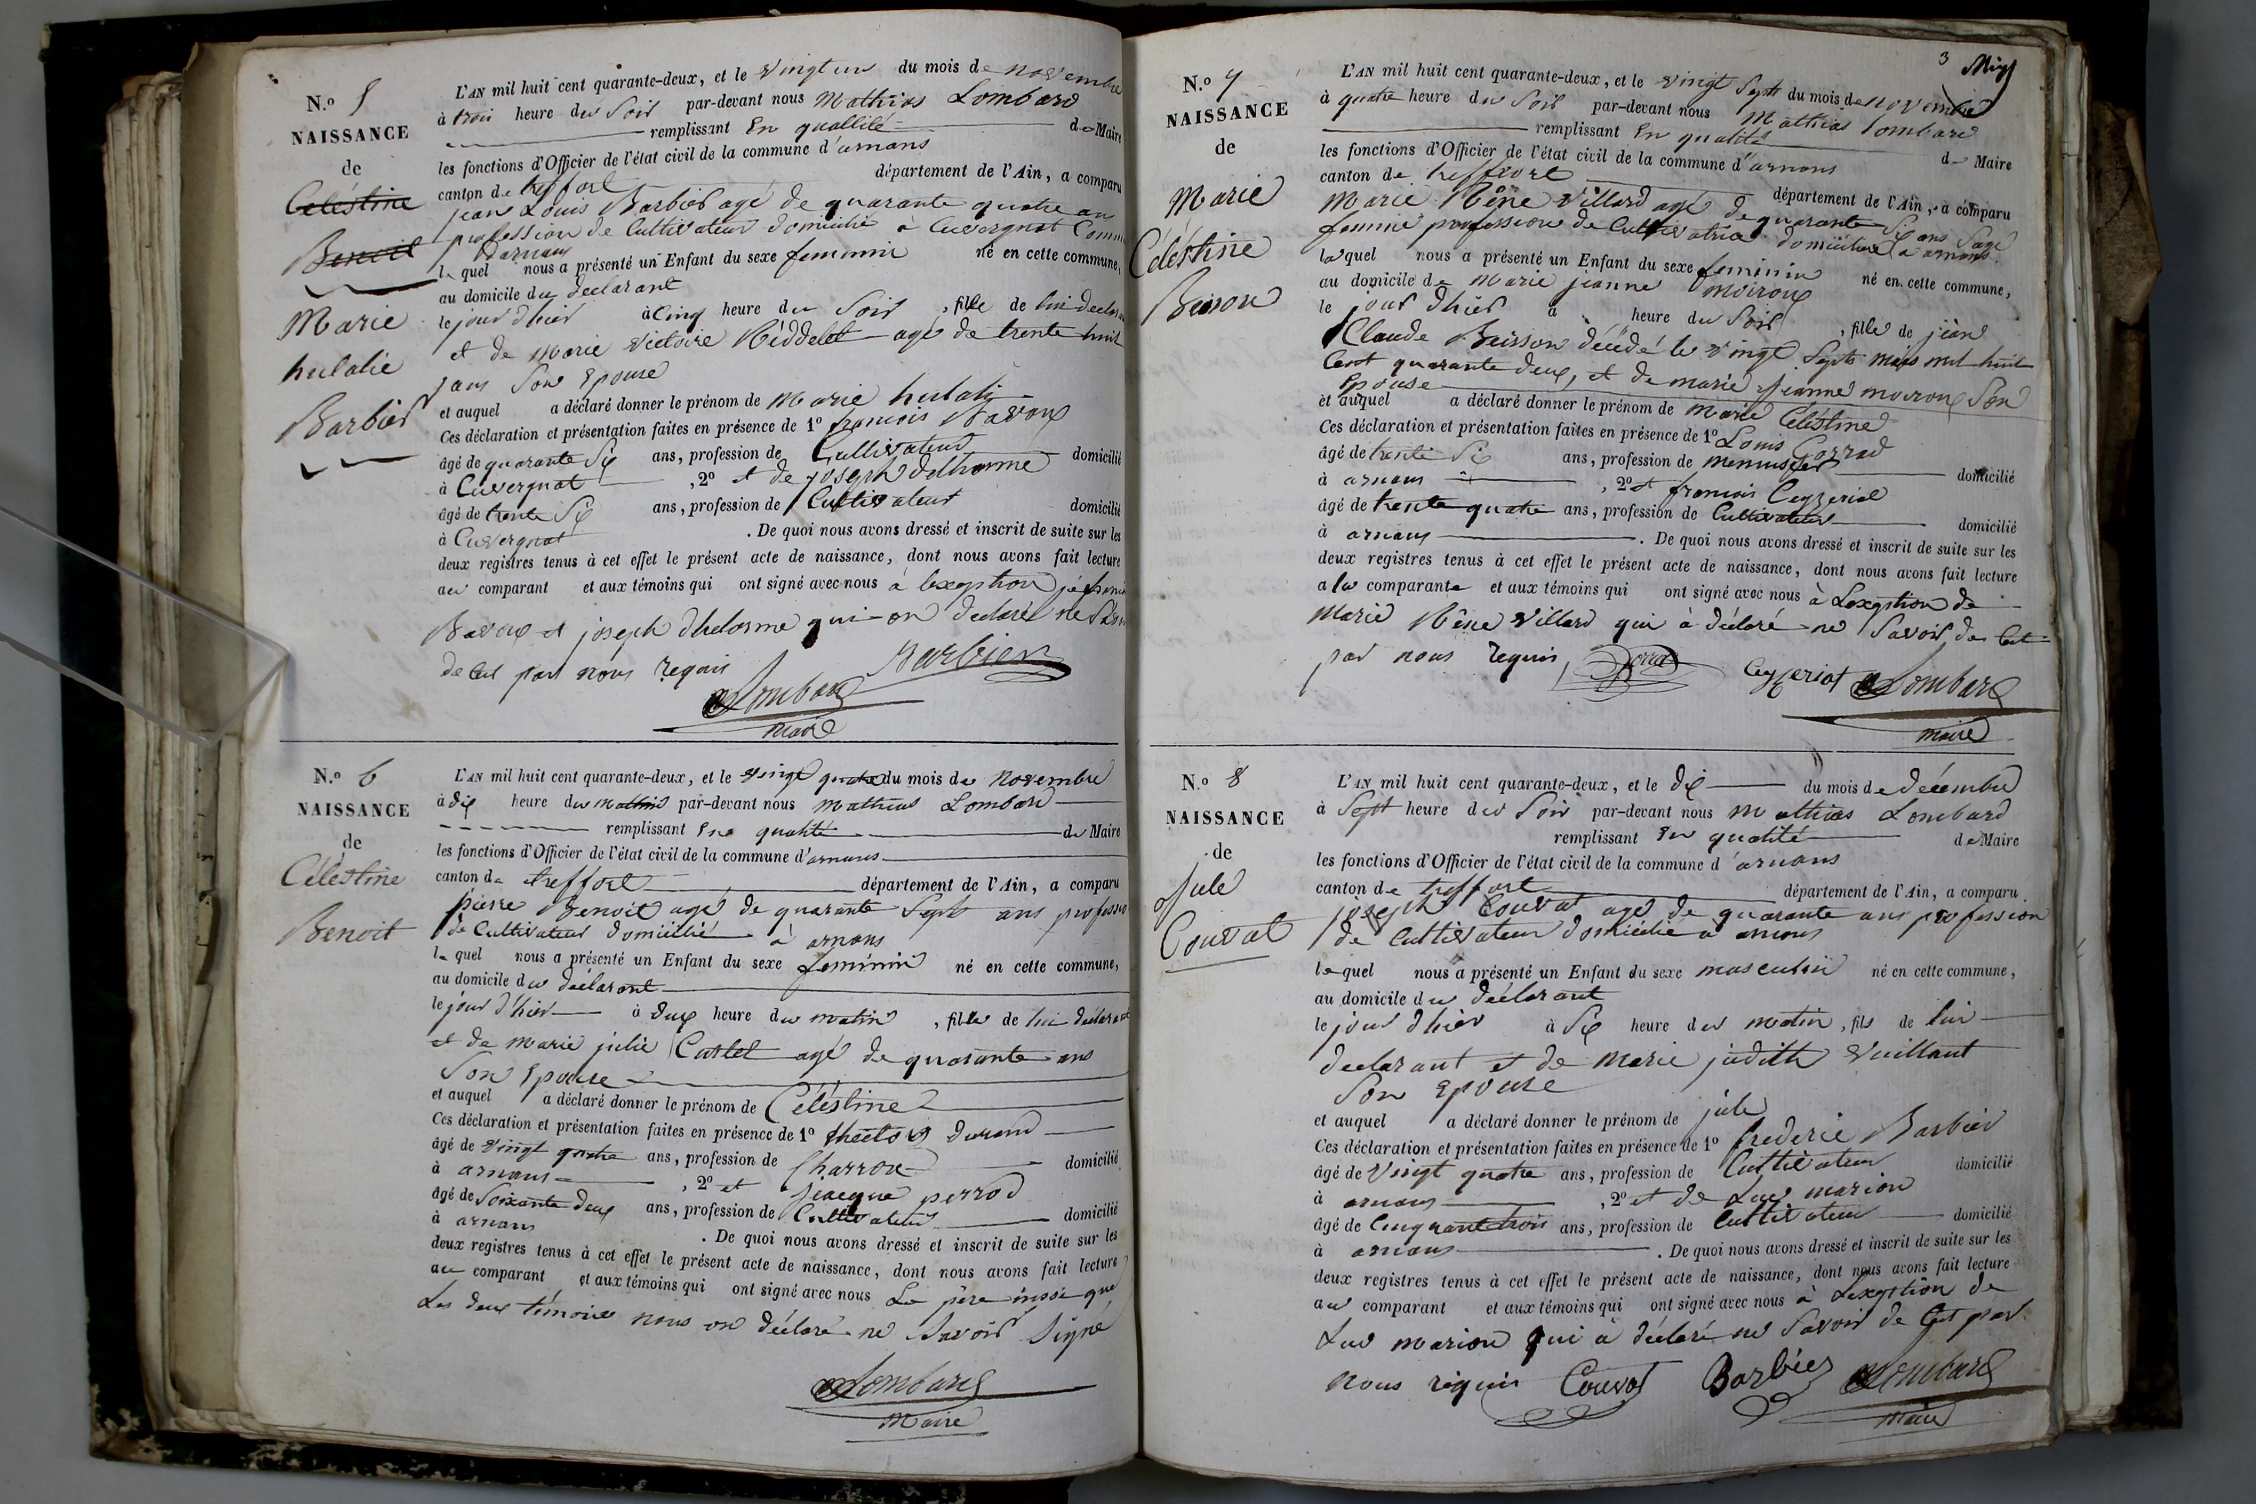 N.o 5
NAISSANCE
de
Celéstine
Benoit
Marie
hulalie
Barbier
L'AN mil huit cent quarante-deux, et le vingt un du mois de novembre
à trois heure du Soir par-devant nous Mathias Lombard
remplissant En quallité de Maire
les fonctions d'Officier de l'état civil de la commune d'arnans
canton de treffort département de l'Ain, a comparu
jean Louis Barbier agé de quarante quatre an
profession de Cultivateur domicilié à Cuvergnat Comm
Darnans
le quel nous a présenté un Enfant du sexe feminin né en cette commune,
au domicile du declarant
le jour d'hier à Cinq heure du Soir, fille de lui declar
et de Marie Victoire Réddelet agé de trente huit
ans Son Epouse
et auquel a déclaré donner le prénom de Marie hulali
Ces déclaration et présentation faites en présence de 1o francois Bavoux
âgé de quarante Six ans, profession de Cultivateur domicilié
à Cuvergnat, 2o et de joseph delhorme
âgé de trente Six ans, profession de Cultivateur domicilié
à Cuvergnat. De quoi nous avons dressé et inscrit de suite sur les
deux registres tenus à cet effet le présent acte de naissance, dont nous avons fait lecture
au comparant et aux témoins qui ont signé avec nous à lexeption
Bavoux et joseph dhelorme qui on declaré ne
de cet par nous requis
Barbier
Lombard
Maire
N.o 6
NAISSANCE
de
Céléstine
Benoit
L'AN mil huit cent quarante-deux, et le vingt quatre du mois de novembre
à dix heure du mattin par-devant nous Mathias Lombard
remplissant En qualité de Maire
les fonctions d'Officier de l'état civil de la commune d'arnans
canton de treffort département de l'Ain, a comparu
pierre Benoit agé de quarante Sept ans profession
de Cultivateur domicillié à arnans
le quel nous a présenté un Enfant du sexe feminin né en cette commune,
au domicile du déclarant
le jour d'hier à deux heure du matin, fille de lui déclarant
et de Marie julie Castel agé de quarante ans
Son Epouse
et auquel a déclaré donner le prénom de Céléstine
Ces déclaration et présentation faites en présence de 1o durand
âgé de vingt quatre ans, profession de Charron domicilié
à arnans, 2o et jiacque perrod
âgé de Soixante deux ans, profession de Cultivateur domicilié
à arnans. De quoi nous avons dressé et inscrit de suite sur les
deux registres tenus à cet effet le présent acte de naissance, dont nous avons fait lecture
au comparant et aux témoins qui ont signé avec nous Le père inssi que
Les deux témoins nous on déclaré ne Savoir Signe
Lombard
Maire
3
N.o 7
NAISSANCE
de
Marie
Céléstine
Buison
L'AN mil huit cent quarante-deux, et le vingt Sept du mois de novembre
à quatre heure du Soir par-devant nous Mathias Lombard
remplissant En qualité de Maire
les fonctions d'Officier de l'état civil de la commune d'arnans
canton de treffort département de l'Ain, a comparu
Marie Rêne Villard agé de quarante Six ans Sage
femme profession de Cultivatrice domiciliée à arnans
la quel nous a présenté un Enfant du sexe feminin né en cette commune,
au domicile de Marie jeanne Moiroux
le jour d'hier à heure du Soir, fille de jean
Claude Buisson décédé le vingt Septe mars mil huit
Cent quarante deux, et de marie jeanne moiroux Son
Epouse
et auquel a déclaré donner le prénom de Marie Céléstine
Ces déclaration et présentation faites en présence de 1o Louis Gorrad
âgé de trente Six ans, profession de menuisier domicilié
à arnans, 2o et francois Ceyzeriat
âgé de trente quatre ans, profession de Cultivateur domicilié
à arnans. De quoi nous avons dressé et inscrit de suite sur les
deux registres tenus à cet effet le présent acte de naissance, dont nous avons fait lecture
a la comparante et aux témoins qui ont signé avec nous à Lexeption de
Marie Rêne Villard qui à déclaré ne Savoir de Cet
par nous requis
Ceyzeriat Lombard
maire
N.o 8
NAISSANCE
de
Jule
Couvat
L'AN mil huit cent quarante-deux, et le dix du mois de décembre
à Sept heure du Soir par-devant nous Mathias Lombard
remplissant En qualité de Maire
les fonctions d'Officier de l'état civil de la commune d'arnans
canton de treffort département de l'Ain, a comparu
joseph Couvat agé de quarante ans profession
de Cultivateur domicilié à arnans
le quel nous a présenté un Enfant du sexe masculin né en cette commune,
au domicile du déclarant
le jour d'hier à Six heure du matin, fils de lui
declarant et de Marie judith Vuillant
Son Epouse
et auquel a déclaré donner le prénom de jule
Ces déclaration et présentation faites en présence de 1o frederic Barbier
âgé de Vingt quatre ans, profession de Cultivateur domicilié
à arnans, 2o et de Luc marion
âgé de Cinquante trois ans, profession de Cultivateur domicilié
à arnans. De quoi nous avons dressé et inscrit de suite sur les
deux registres tenus à cet effet le présent acte de naissance, dont nous avons fait lecture
au comparant et aux témoins qui ont signé avec nous à Lexeption de
Luc marion qui à déclaré ne Savoir de Cet par
nous requis Couvat Barbier Lombard
maire